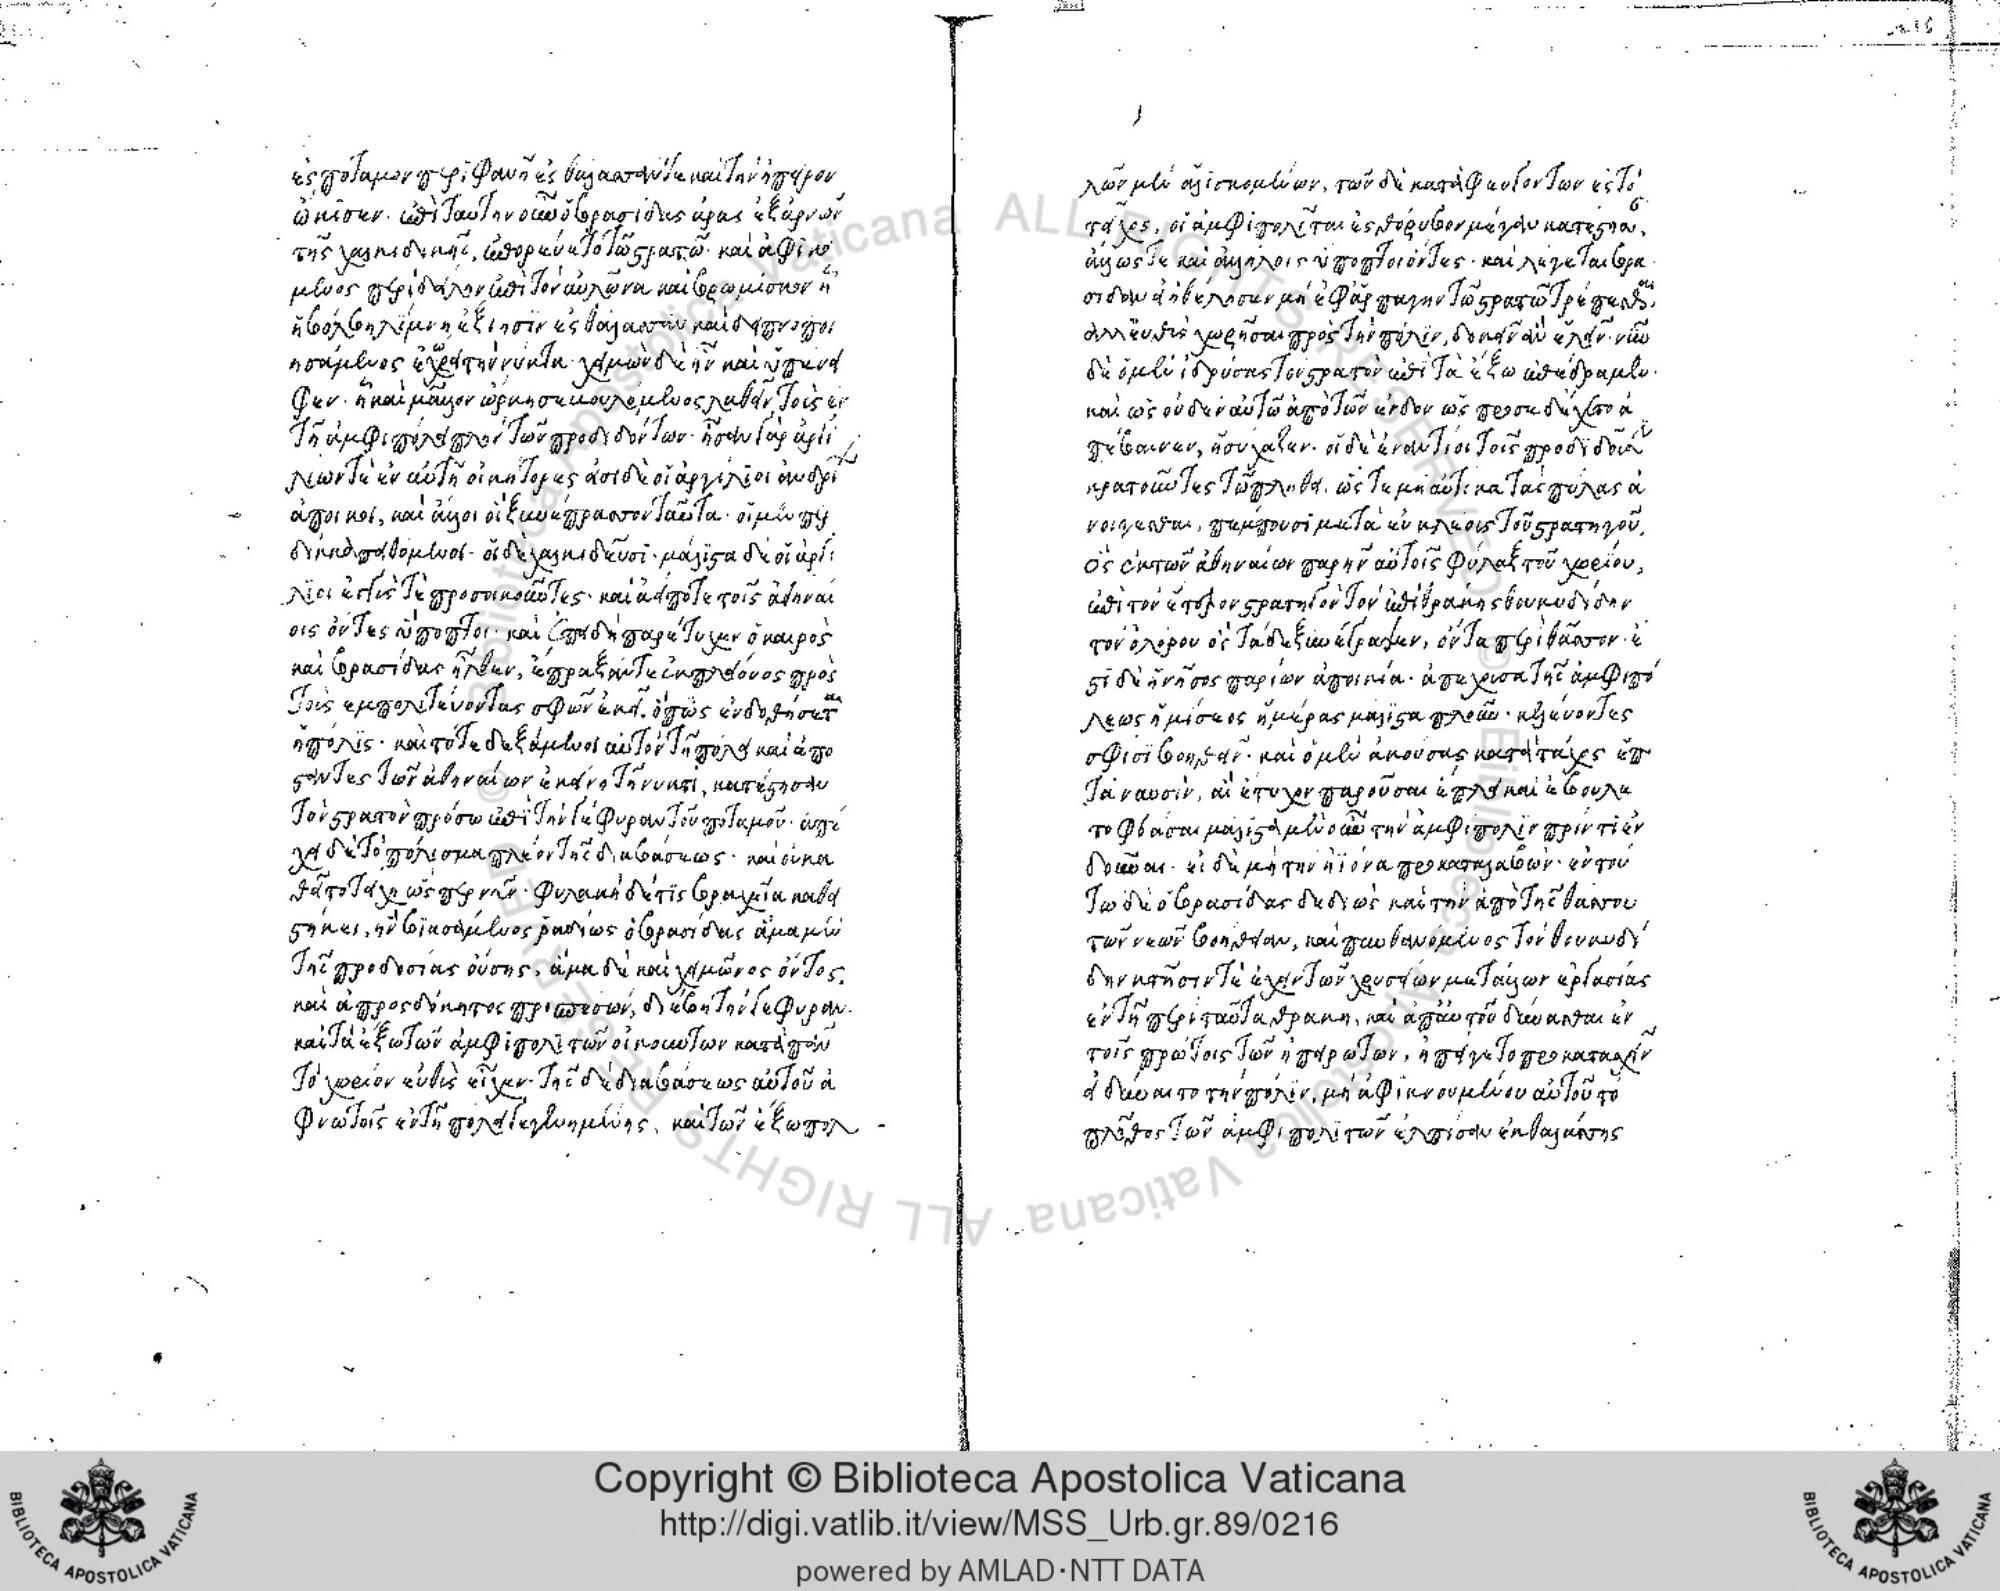 ἐς ποταμὸν περιφανῆ ἐς θάλασσάν τε καὶ τὴν ἤπειρον
ᾤκισεν. ἐπὶ ταύτην οὖν ὁ βρασίδας ἄρας ἐξ ἀρνῶν
τῆς χαλκιδικῆς, ἐπορεύετο τῶ στρατῶ. καὶ ἀφικό
μενος περὶ δείλην ἐπὶ τὸν αὐλῶνα καὶ βρωμίσκον ἧ
ἡ βόλβη λίμνη ἐξίησιν ἐς θάλασσαν καὶ δειπνοποι
ησάμενος ἐχώρει τὴν νύκτα. χειμὼν δὲ ἦν καὶ ὑπένει
φεν. ἧ καὶ μᾶλλον ὥρμησε βουλόμενος λαθεῖν τοὺς ἐν
τῆ ἀμφιπόλει πλὴν τῶν προδιδόντων. ἦσαν γὰρ ἀργι
λίων τὲ ἐν αὐτῆ οἰκήτορες εἰσὶ δὲ οἱ ἀργίλιοι ἀνδρί
ἄποικοι, καὶ ἄλλοι οἳ ξυνέπρασσον ταῦτα. οἱ μὲν περ
δίκκα πειθόμενοι. οἱ δὲ χαλκιδεῦσι. μάλιστα δὲ οἱ ἀργί
λιοι ἐγγύς τε προσοικοῦντες. καὶ ἀεί ποτε τοῖς ἀθηναί
οις ὄντες ὕποπτοι. καὶ ἐπειδὴ παρέτυχεν ὁ καιρὸς
καὶ βρασίδας ἦλθεν, ἔπραξάν τε ἐκ πλείονος πρὸς
τοὺς ἐμπολιτεύοντας σφῶν ἐκεῖ. ὅπως ἐνδοθήσεται
ἡ πόλις. καὶ τότε δεξάμενοι αὐτὸν τῆ πόλει καὶ ἀπο
στάντες τῶν ἀθηναίων ἐκείνη τῆ νυκτὶ, κατέστησαν
τὸν στρατὸν πρόσω ἐπὶ τὴν γέφυραν τοῦ ποταμοῦ. ἀπέ
χει δὲ τὸ πόλισμα πλέον τῆς διαβάσεως. καὶ οὐ κα
θεῖτο τείχη ὥσπερ νῦν. φυλακὴ δέ τις βραχεῖα καθει
στήκει, ἣν βιασάμενος ῥαδίως ὁ βρασίδας ἅμα μὲν
τῆς προδοσίας οὔσης, ἅμα δὲ καὶ χειμῶνος ὄντος,
καὶ ἀπροσδόκητος προσπεσών, διέβη τὴν γέφυραν.
καὶ τὰ ἔξω τῶν ἀμφιπολιτῶν οἰκούντων κατὰ πᾶν
τὸ χωρίον εὐθὺς εἶχεν. τῆς δὲ διαβάσεως αὐτοῦ ἄ
φνω τοῖς ἐν τῆ πόλει γεγενημένης, καὶ τῶν ἔξω πολ
λῶν μὲν ἁλισκομένων, τῶν δὲ καταφευγόντων ἐς τὸ
τεῖχος, οἱ ἀμφιπολῖται ἐς θόρυβον μέγαν κατέστησαν,
ἄλλως τε καὶ ἀλλήλοις ὕποπτοι ὄντες. καὶ λέγεται βρα
σίδαν εἰ ἠθέλησεν μὴ ἐφ' ἁρπαγὴν τῶ στρατῶ τρέπεσθαι,
ἀλλ' εὐθὺς χωρῆσαι πρὸς τὴν πόλιν, δοκεῖν ἂν ἑλεῖν. νῦν
δὲ ὁ μὲν ἱδρύσας τὸν στρατὸν ἐπὶ τὰ ἔξω ἐπέδραμεν.
καὶ ὡς οὐδὲν αὐτῶ ἀπὸ τῶν ἔνδον ὡς προσεδέχετο ἀ
πέβαινεν, ἡσύχαζεν. οἱ δὲ ἐναντίοι τοῖς προδιδοῦσι
κρατοῦντες τῶ πλήθει. ὥστε μὴ αὐτίκα τὰς πύλας ἀ
νοίγεσθαι, πέμπουσι μετὰ εὐκλέους τοῦ στρατηγοῦ,
ὃς ἐκ τῶν ἀθηναίων παρῆν αὐτοῖς φύλαξ τοῦ χωρίου,
ἐπὶ τὸν ἕτερον στρατηγὸν τὸν ἐπὶ θράκης θουκυδίδην
τὸν ὀλόρου ὃς τάδε ξυνέγραψεν, ὄντα περὶ θάσον. ἔ
στι δὲ ἡ νῆσος παρίων ἀποικία. ἀπέχουσα τῆς ἀμφιπό
λεως ἡμίσεος ἡμέρας μάλιστα πλοῦν. κελεύοντες
σφίσι βοηθεῖν. καὶ ὁ μὲν ἀκούσας κατὰ τάχος ἑπ
τὰ ναυσὶν, αἳ ἔτυχον παροῦσαι ἔπλει καὶ ἐβούλε
το φθάσαι μάλιστα μὲν οὖν τὴν ἀμφίπολιν πρίν τι ἐν
δοῦναι. εἰ δὲ μὴ τὴν ἠϊόνα προκαταλαβών. ἐν τού
τω δὲ ὁ βρασίδας δεδιὼς καὶ τὴν ἀπὸ τῆς θάσου
τῶν νεῶν βοήθειαν, καὶ πυνθανόμενος τὸν θουκυδί
δην κτῆσίν τε ἔχειν τῶν χρυσείων μετάλλων ἐργασίας
ἐν τῆ περὶ ταῦτα θράκη, καὶ ἀπ' αὐτοῦ δύνασθαι ἐν
τοῖς πρώτοις τῶν ἠπειρωτῶν, ἠπείγετο προκατασχεῖν
εἰ δύναιτο τὴν πόλιν, μὴ ἀφικνουμένου αὐτοῦ τὸ
πλῆθος τῶν ἀμφιπολιτῶν ἐλπίσαν ἐκ θαλάσσης
Copyright © Biblioteca Apostolica Vaticana
http://digi.vatlib.it/view/MSS_Urb.gr.89/0216
powered by AMLAD·NTT DATA